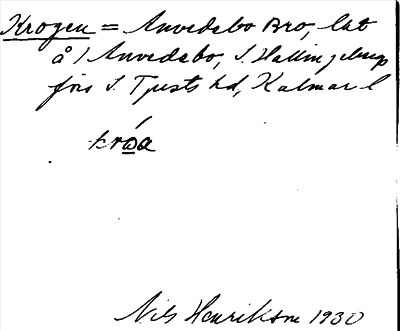 Krogen = Anvedebo Bro, lat
å / Anvedebo, S. Hallingeberg
förs S. Tjusts hd, Kalmar l
króa
Nils Henrikson 1930